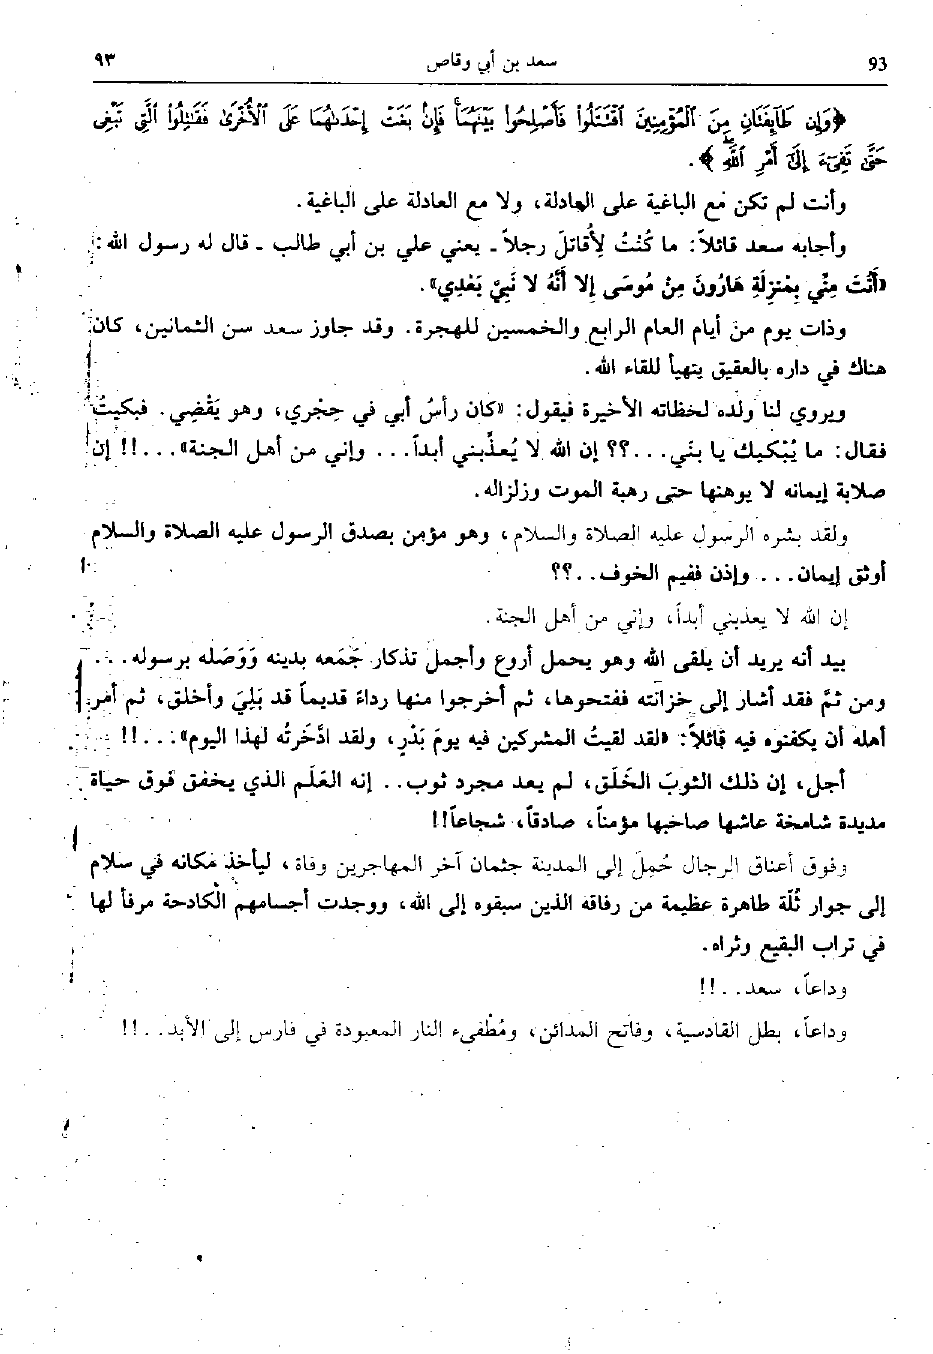 93 سعد بن أبي وقاص ٩٣
﴿وَإِن طَآئِفَتَانِ مِنَ ٱلْمُؤْمِنِينَ ٱقْتَتَلُوا۟ فَأَصْلِحُوا۟ بَيْنَهُمَاۖ فَإِنۢ بَغَتْ إِحْدَىٰهُمَا عَلَى ٱلْأُخْرَىٰ فَقَٰتِلُوا۟ ٱلَّتِى تَبْغِى
حَتَّىٰ تَفِىٓءَ إِلَىٰٓ أَمْرِ ٱللَّهِ﴾.
وأنت لم تكن مع الباغية على العادلة، ولا مع العادلة على الباغية.
وأجابه سعد قائلاً: ما كُنْتُ لِأُقاتلَ رجلاً - يعني علي بن أبي طالب - قال له رسول الله:
«أَنْتَ مِنِّي بِمَنْزِلَةِ هَارُونَ مِنْ مُوسَى إِلا أَنَّهُ لا نَبِيَّ بَعْدِي».
وذات يوم من أيام العام الرابع والخمسين للهجرة. وقد جاوز سعد سن الثمانين، كان
هناك في داره بالعقيق يتهيأ للقاء الله.
ويروي لنا ولده لحظاته الأخيرة فيقول: «كان رأسُ أبي في حِجْري، وهو يَقْضِي. فبكيتُ
فقال: ما يُبْكيك يا بنَي...؟؟ إن الله لا يُعذِّبني أبداً... وإني من أهل الجنة»...!! إن
صلابة إيمانه لا يوهنها حتى رهبة الموت وزلزاله.
ولقد بشره الرسول عليه الصلاة والسلام، وهو مؤمن بصدق الرسول عليه الصلاة والسلام
أوثق إيمان... وإذن ففيم الخوف..؟؟
إن الله لا يعذبني أبداً، وإني من أهل الجنة.
بيد أنه يريد أن يلقى الله وهو يحمل أروع وأجمل تذكار جَمَعه بدينه وَوَصَله برسوله...
ومن ثمَّ فقد أشار إلى خزانته ففتحوها، ثم أخرجوا منها رداءً قديماً قد بَلِيَ وأخلق، ثم أمر
أهله أن يكفنوه فيه قائلاً: «لقد لقيتُ المشركين فيه يومَ بَدْرٍ، ولقد ادَّخَرتُه لهذا اليوم»...!!
أجل، إن ذلك الثوبَ الخَلَق، لم يعد مجرد ثوب.. إنه العَلَم الذي يخفق فوق حياة
مديدة شامخة عاشها صاحبها مؤمناً، صادقاً، شجاعاً!!
وفوق أعناق الرجال حُمِلَ إلى المدينة جثمان آخر المهاجرين وفاة، ليأخذ مكانه في سلام
إلى جوار ثُلّة طاهرة عظيمة من رفاقه الذين سبقوه إلى الله، ووجدت أجسامهم الكادحة مرفأ لها
في تراب البقيع وثراه.
وداعاً، سعد..!!
وداعاً، بطل القادسية، وفاتح المدائن، ومُطْفىء النار المعبودة في فارس إلى الأبد..!!